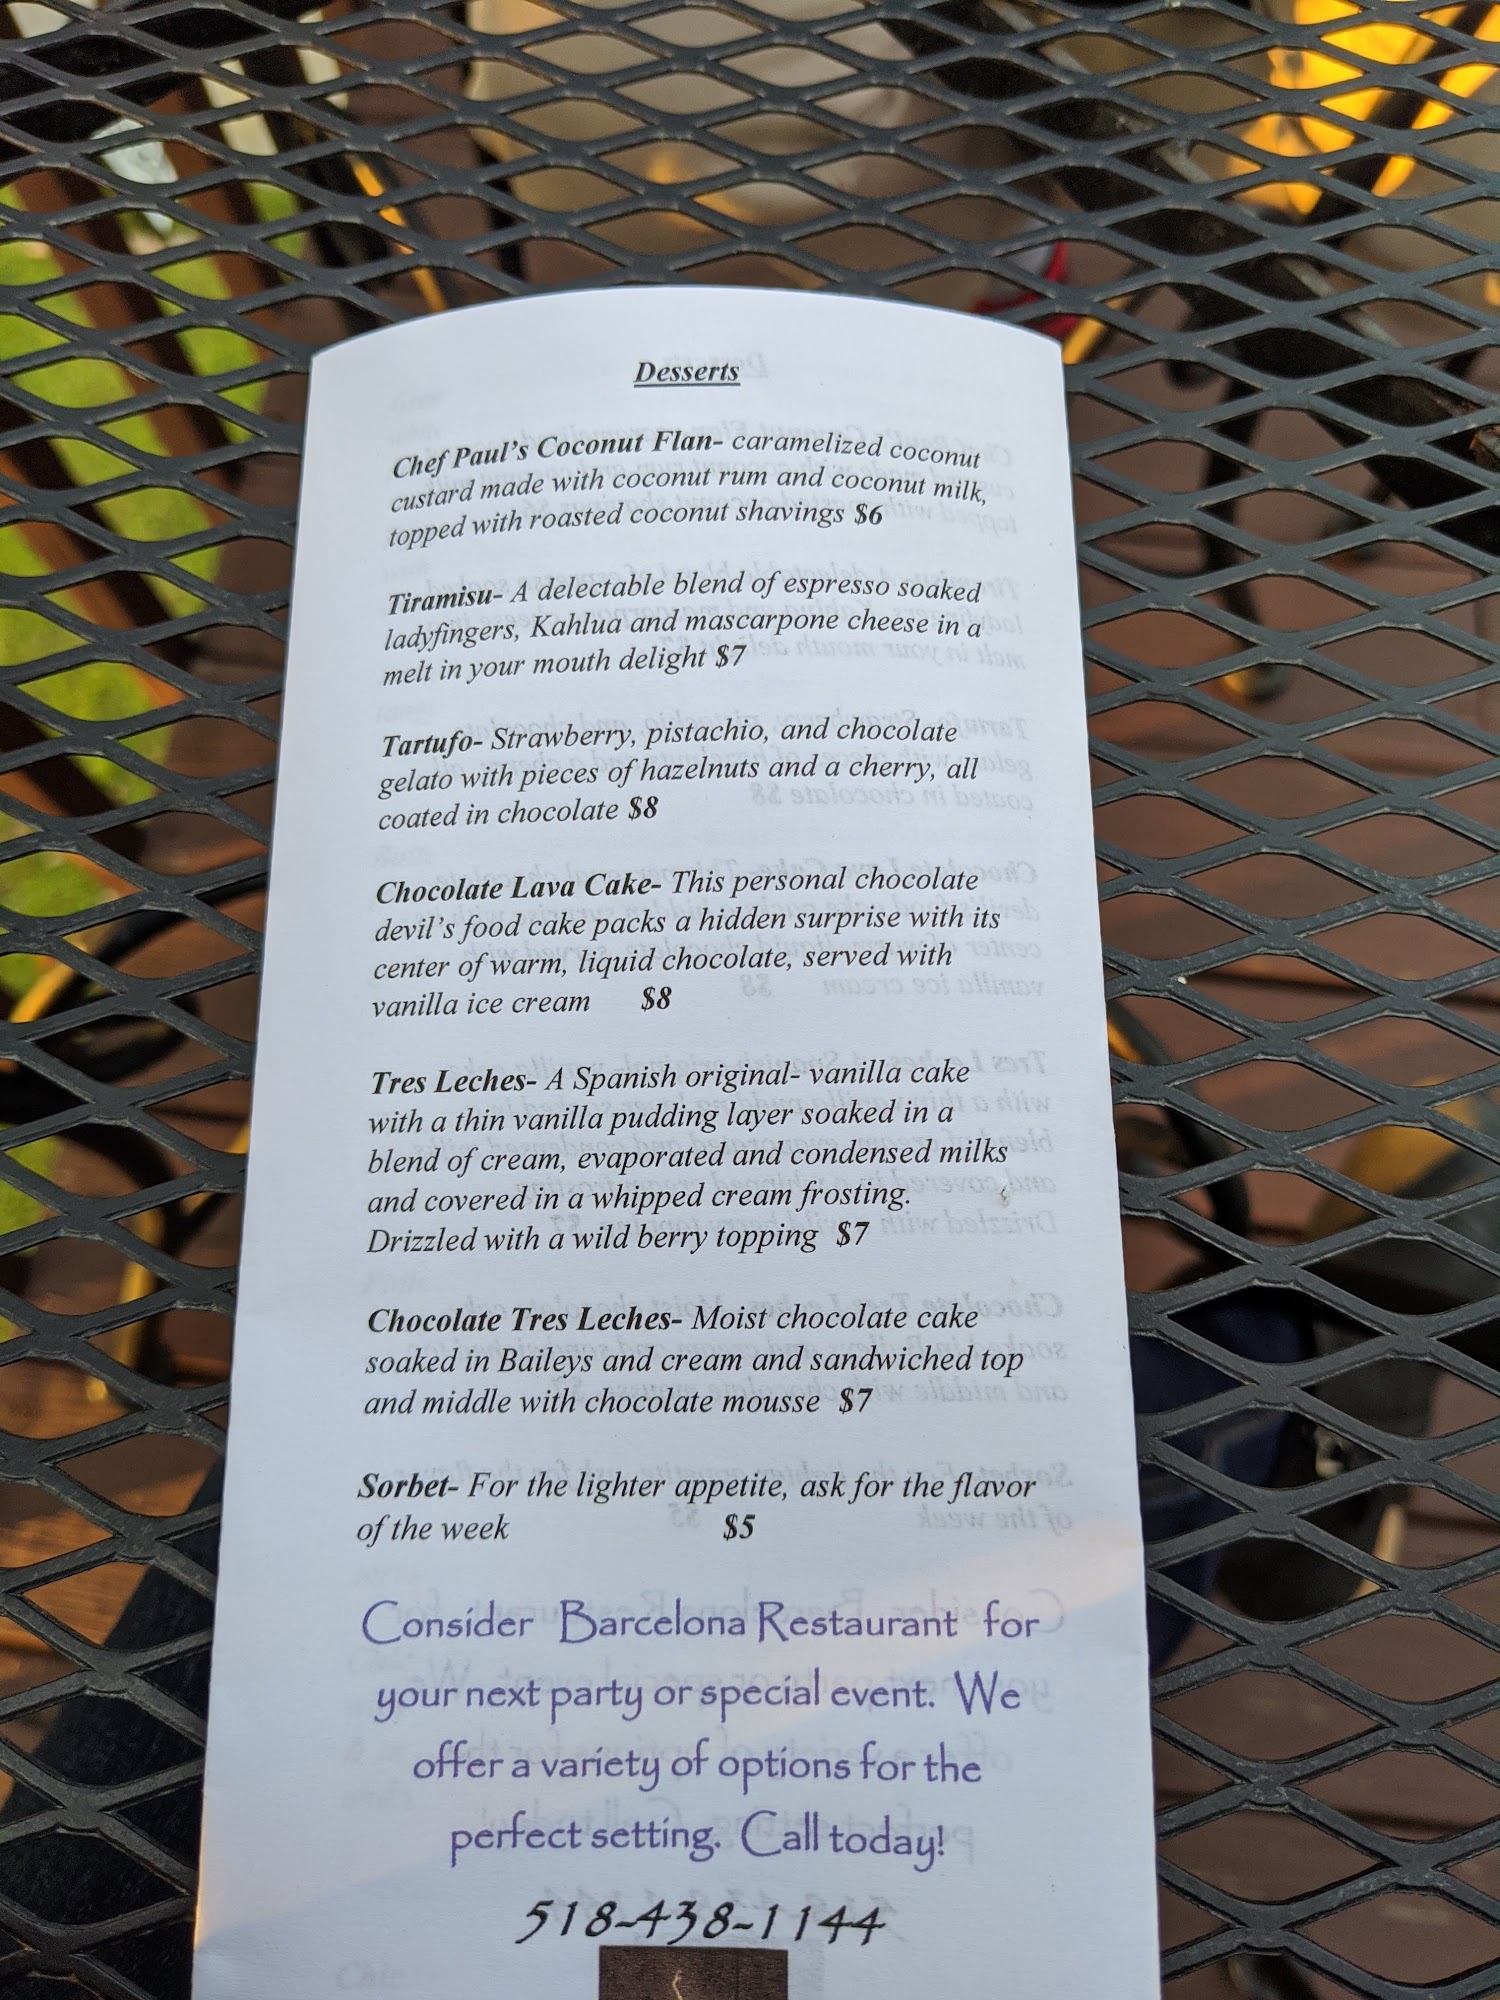 Desserts
Chef Paul's Coconut Flan- caramelized coconut
custard made with coconut rum and coconut milk,
topped with roasted coconut shavings $6
Tiramisu- A delectable blend of espresso soaked
ladyfingers, Kahlua and mascarpone cheese in a
melt in your mouth delight $7
Tartufo- Strawberry, pistachio, and chocolate
gelato with pieces of hazelnuts and a cherry, all
coated in chocolate $8
Chocolate Lava Cake- This personal chocolate
devil's food cake packs a hidden surprise with its
center of warm, liquid chocolate, served with
vanilla ice cream $8
Tres Leches- A Spanish original- vanilla cake
with a thin vanilla pudding layer soaked in a
blend of cream, evaporated and condensed milks
and covered in a whipped cream frosting.
Drizzled with a wild berry topping $7
Chocolate Tres Leches- Moist chocolate cake
soaked in Baileys and cream and sandwiched top
and middle with chocolate mousse $7
Sorbet- For the lighter appetite, ask for the flavor
of the week $5
Consider Barcelona Restaurant for
your next party or special event. We
offer a variety of options for the
perfect setting. Call today!
518-438-1144